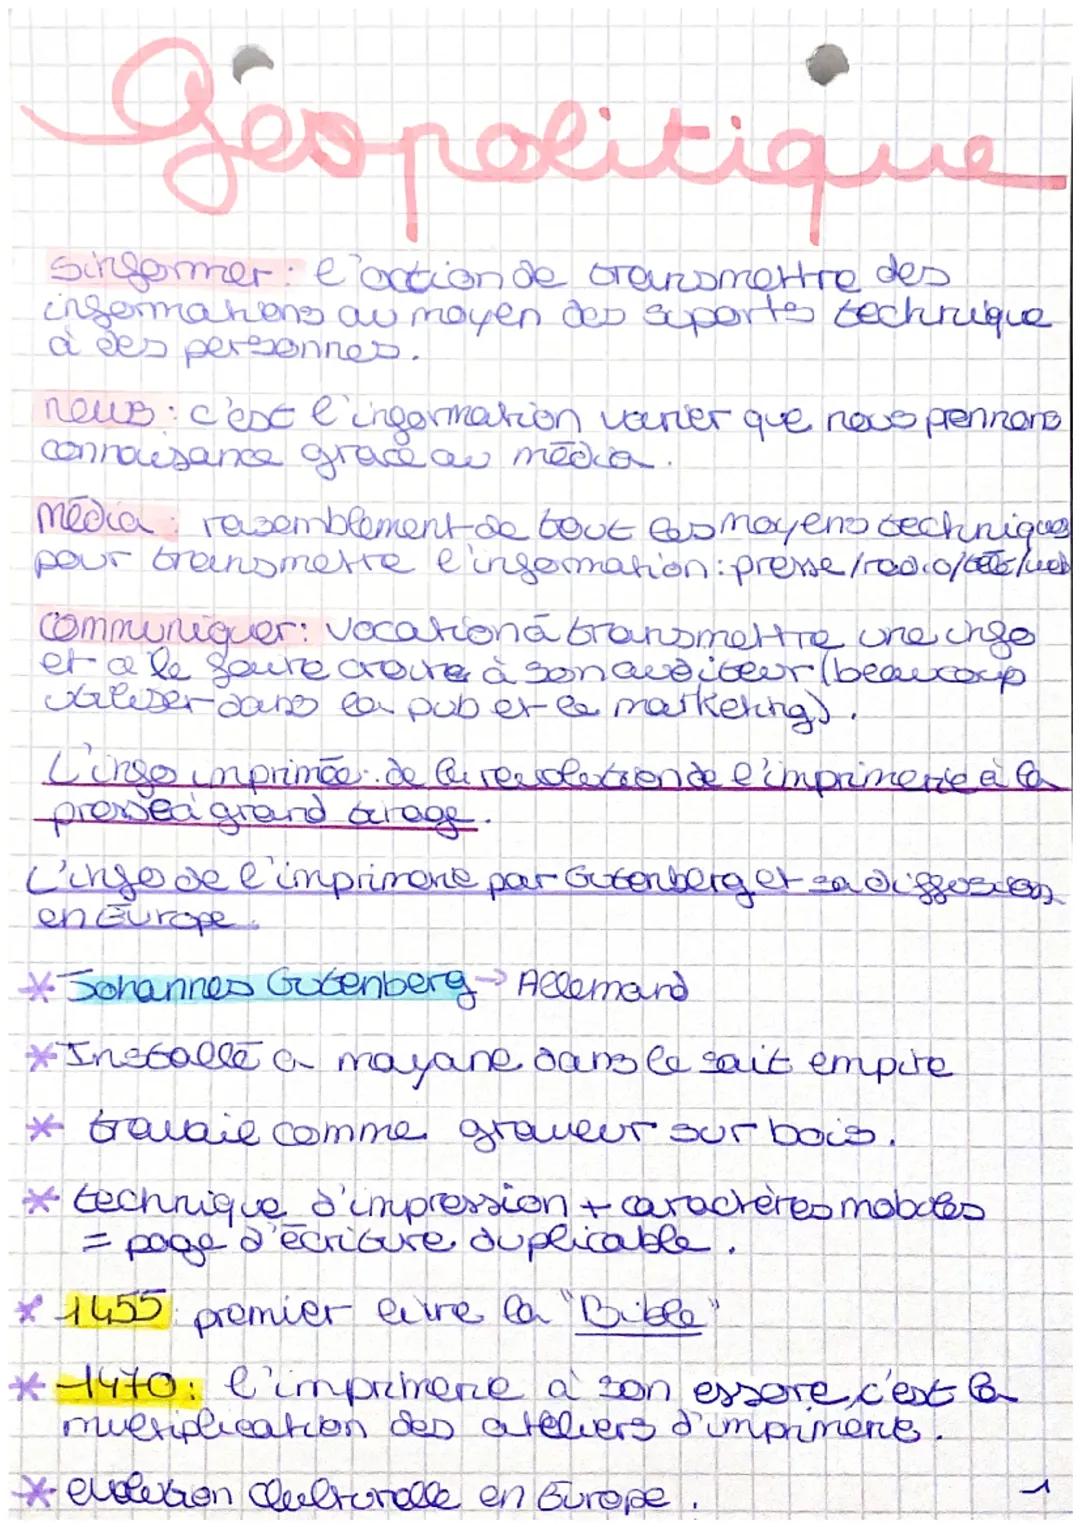 Géopolitique
S'informer : l'action de transmettre des
informations au moyen des suports technique
à des personnes.
news : c'est l'information varier que nous prennons
connaisance grace au média.
Média : rasemblement de tout les moyens techniques
pour transmettre l'information : presse/radio/télé/web
Communiquer : vocation à transmettre une info
et a le faire croire à son auditeur (beaucoup
utiliser dans la pub et le marketing).
L'info imprimée : de la revolution de l'imprimerie à la
presse à grand tirage.
L'info de l'imprimerie par Gutenberg et sa diffusion
en Europe.
* Johannes Gutenberg → Allemand
* Installé a mayane dans le sait empire
* travaie comme graveur sur bois.
* technique d'impression + caractères mobiles
= page d'écriture duplicable.
* 1455 : premier livre la "Bible"
* 1470 : l'imprimerie a son essore, c'est la
multiplication des ateliers d'imprimerie.
* evolution culturelle en Europe.
1